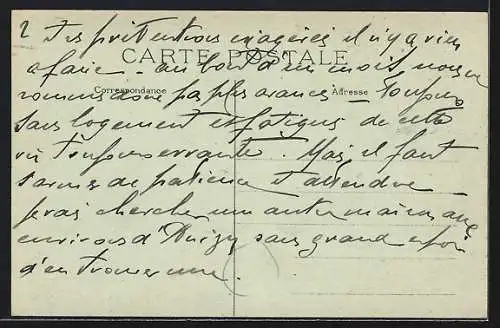 2 des prétentions exagérées il n'y a rien
CARTE POSTALE
a faire - au bout d'un mois nous ne
Correspondance
Adresse
sommes donc pas plus avancés - toujours
sans logement et fatigués de cette
vie toujours errante. Mais il faut
s'armer de patience et attendre
je vais chercher une autre maison aux
environs d' sans grand espoir
d'en trouver une.